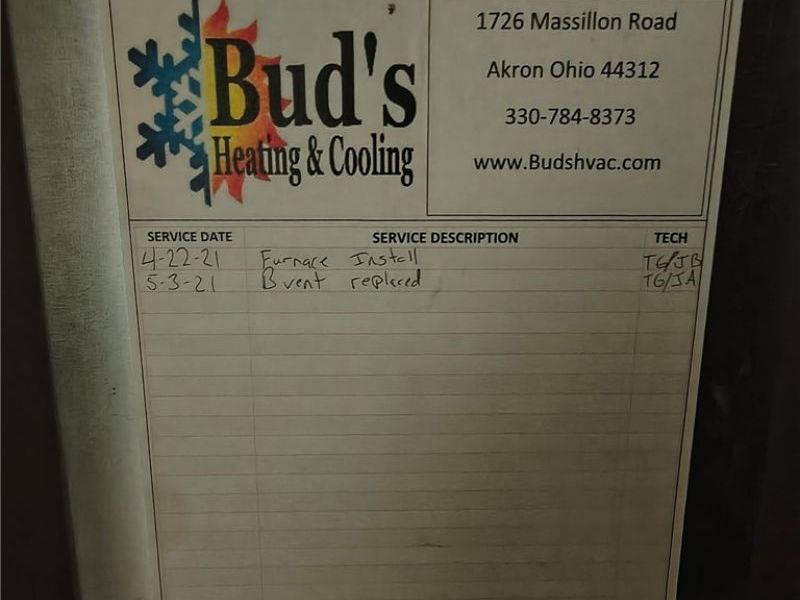 Bud's
Heating & Cooling
1726 Massillon Road
Akron Ohio 44312
330-784-8373
www.Budshvac.com
SERVICE DATE SERVICE DESCRIPTION TECH
4-22-21 Furnace Install TG/JB
5-3-21 B vent replaced TG/JA